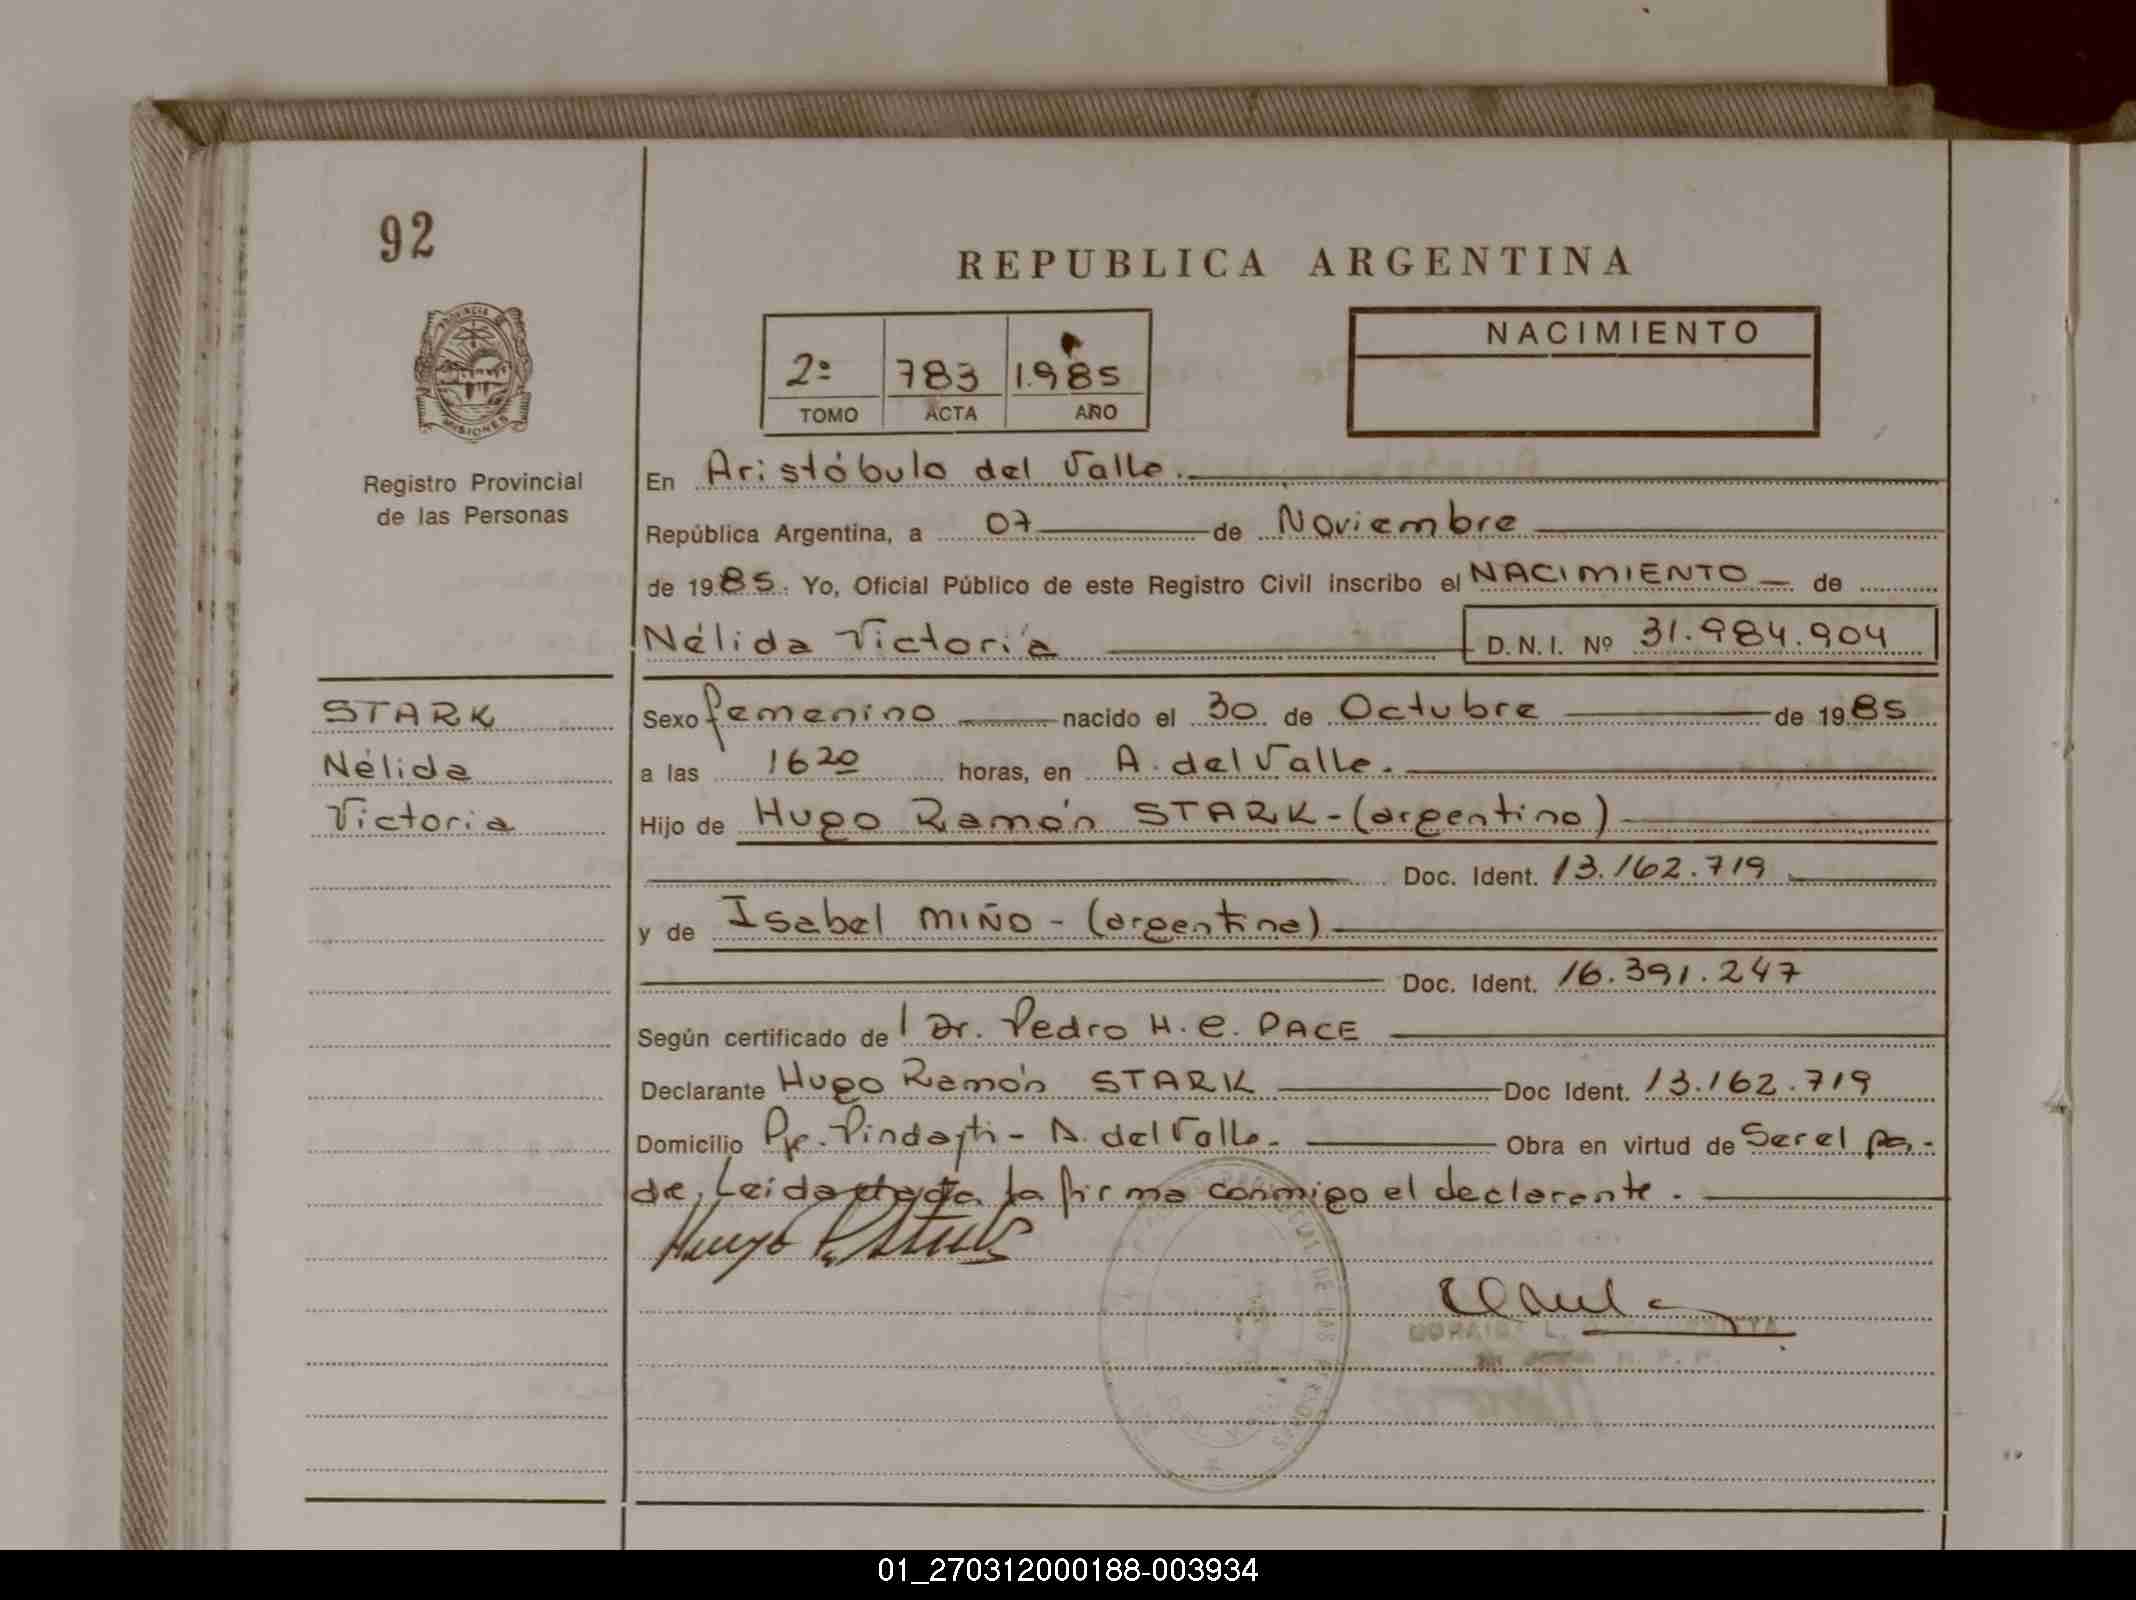 92
REPUBLICA ARGENTINA
PROVINCIA DE
MISIONES
2º 783 1.985
TOMO ACTA AÑO
NACIMIENTO
Registro Provincial
de las Personas
En Aristóbulo del Valle.
República Argentina, a 07 de Noviembre
de 1985. Yo, Oficial Público de este Registro Civil inscribo el NACIMIENTO de
Nélida Victoria D.N.I. Nº 31.984.904
STARK
Nélida
Victoria
Sexo femenino nacido el 30 de Octubre de 1985
a las 16 20 horas, en A. del Valle.
Hijo de Hugo Ramón STARK - (argentino)
Doc. Ident. 13.162.719
y de Isabel MIÑO - (argentina)
Doc. Ident. 16.391.247
Según certificado de Dr. Pedro H. C. PACE
Declarante Hugo Ramón STARK Doc Ident. 13.162.719
Domicilio - A. del Valle. Obra en virtud de Ser el pa-
dre. Leida la firma conmigo el declarante.
Hugo R. Stark
DE LAS PERSONAS
01_270312000188-003934